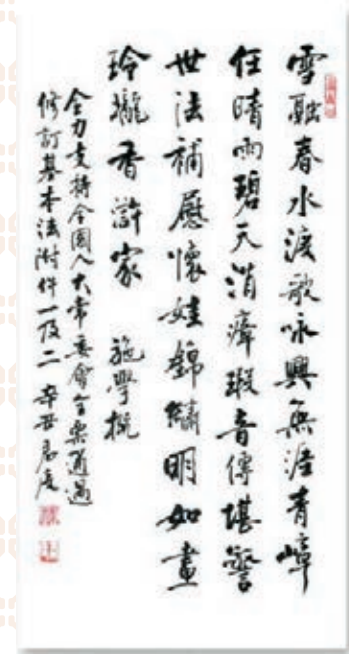 雪融春水淚歌咏興無涯青嶂
任晴雨碧天消瘴瑕音傳堪警
世法補屢懷娃錦繡明如畫
玲瓏香滸家 施學概
全力支持全國人大常委會全票通過
修訂基本法附件一及二 辛丑